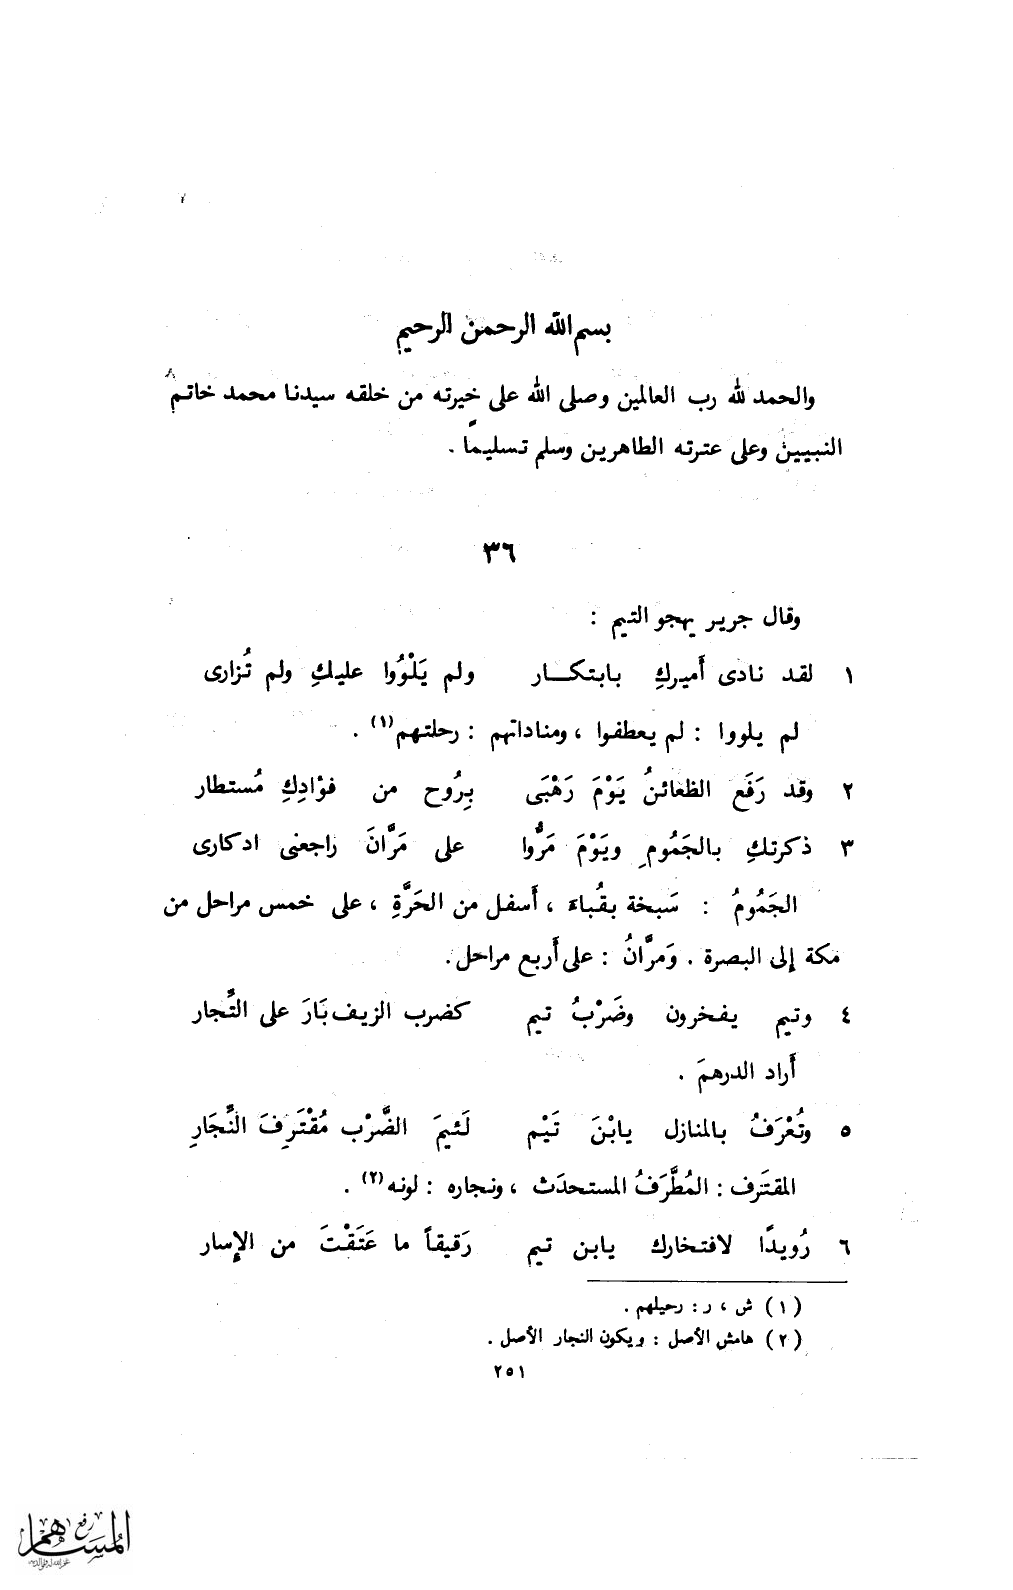 بسم الله الرحمن الرحيم
والحمد لله رب العالمين وصلى الله على خيرته من خلقه سيدنا محمد خاتم
النبيين وعلى عترته الطاهرين وسلم تسليمًا .
٣٦
وقال جرير يهجو التيم :
١ لقد نادى أَميركِ بابتكـــار ولم يَلْوُوا عليكِ ولم تُزارى
لم يلووا : لم يعطفوا ، ومناداتهم : رحلتهم(١) .
٢ وقد رَفَع الظعائنُ يَوْمَ رَهْبَى بِرُوح من فؤادِكِ مُستطار
٣ ذكرتكِ بالجَمُومِ ويَوْمَ مَرُّوا على مَرَّانَ راجعنى ادكارى
الجَمُومُ : سَبخة بقُباءَ ، أَسفل من الحَرَّةِ ، على خمس مراحل من
مكة إلى البصرة . وَمرَّانُ : على أَربع مراحل .
٤ وتيم يفخرون وضَرْبُ تيم كضرب الزيف بَارَ على التِّجار
أَراد الدرهمَ .
٥ وتُعْرَفُ بالمنازل يابْنَ تَيْم لَئيمَ الضَّرْب مُقْتَرِفَ النِّجَارِ
المقتَرف : المُطَّرَفُ المستحدَث ، ونجاره : لونه(٢) .
٦ رُويدًا لافتخارك يابن تيم رَقيقاً ما عَتَقْتَ من الإِسار
(١) ش ، ر : رحيلهم .
(٢) هامش الأصل : ويكون النجار الأصل .
٢٥١
رفع
المساهم